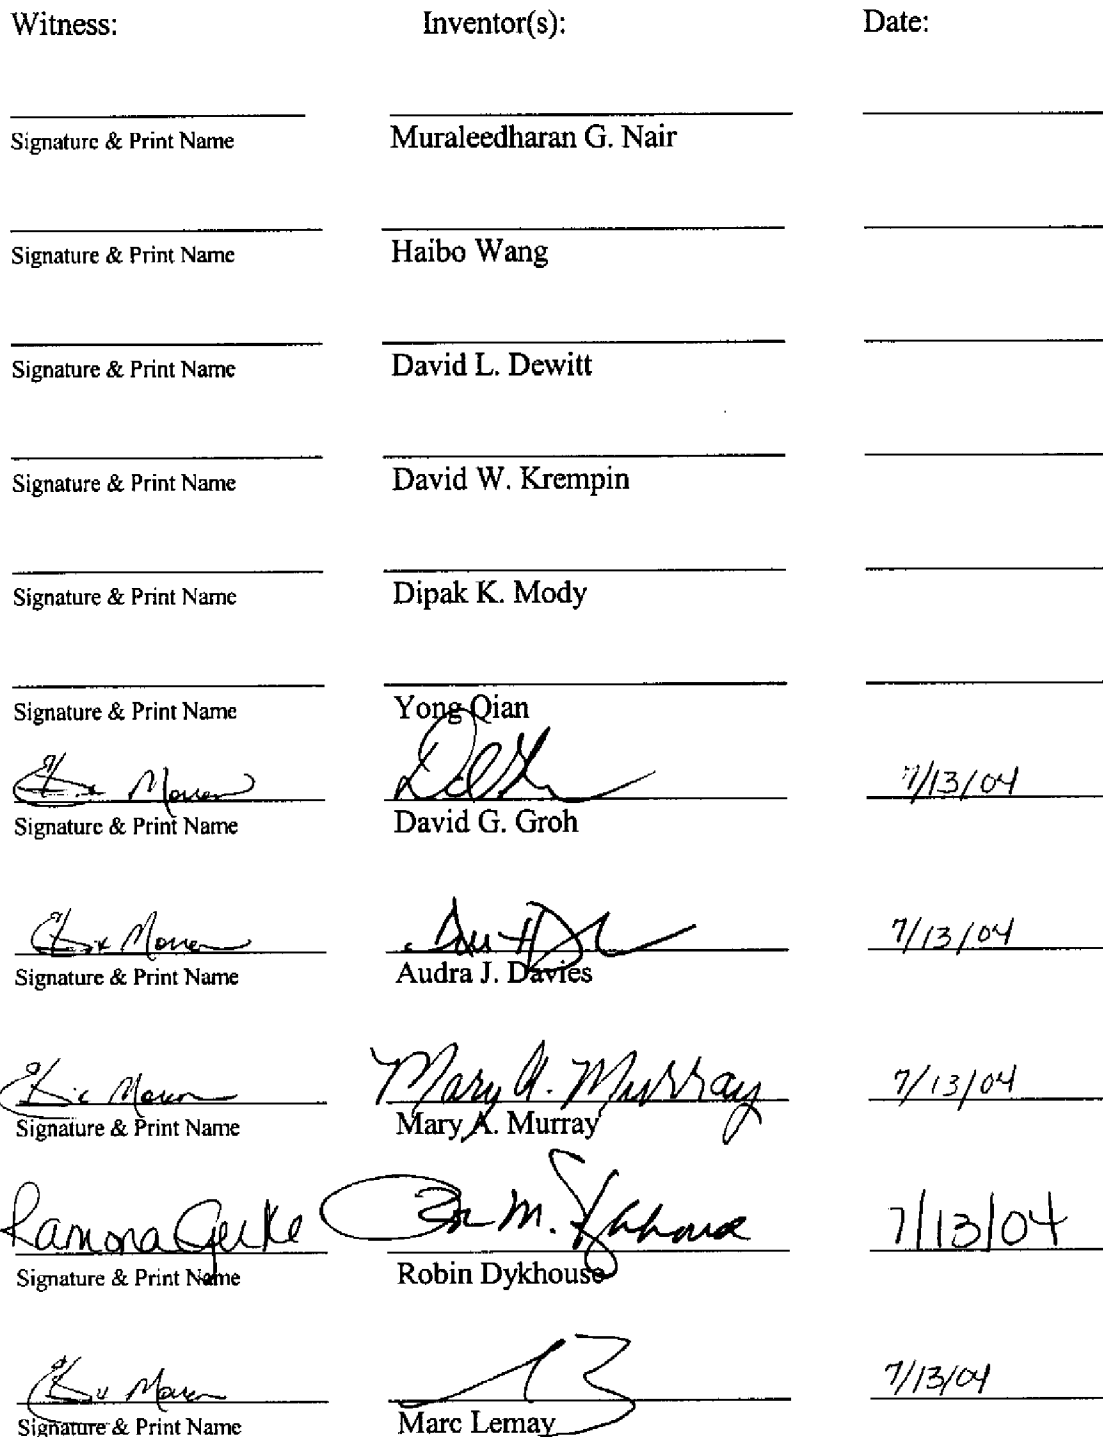 Witness: Inventor(s): Date:
Signature & Print Name Muraleedharan G. Nair
Signature & Print Name Haibo Wang
Signature & Print Name David L. Dewitt
Signature & Print Name David W. Krempin
Signature & Print Name Dipak K. Mody
Signature & Print Name Yong Qian
7/13/04
Signature & Print Name David G. Groh
7/13/04
Signature & Print Name Audra J. Davies
Mary A. Murray 7/13/04
Signature & Print Name Mary A. Murray
Ramona Gerke 7/13/04
Signature & Print Name Robin Dykhouse
7/13/04
Signature & Print Name Marc Lemay